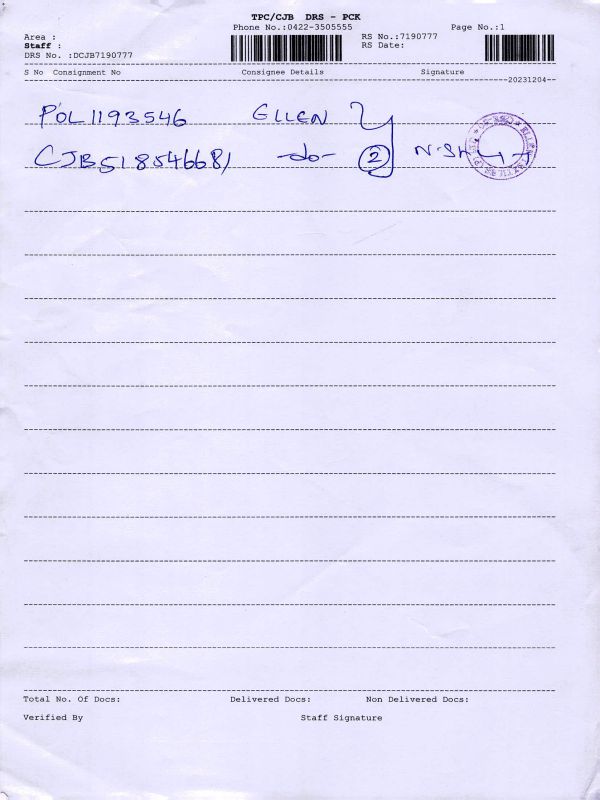 TPC/CJB DRS - PCK
Phone No.:0422-3505555
Page No.:1
Area :
RS No.:7190777
Staff :
RS Date:
DRS No. :DCJB7190777
S No Consignment No Consignee Details Signature
20231204
POL1193546 ELLEN
CJB518546681 -do- 2
Total No. Of Docs: Delivered Docs: Non Delivered Docs:
Verified By Staff Signature